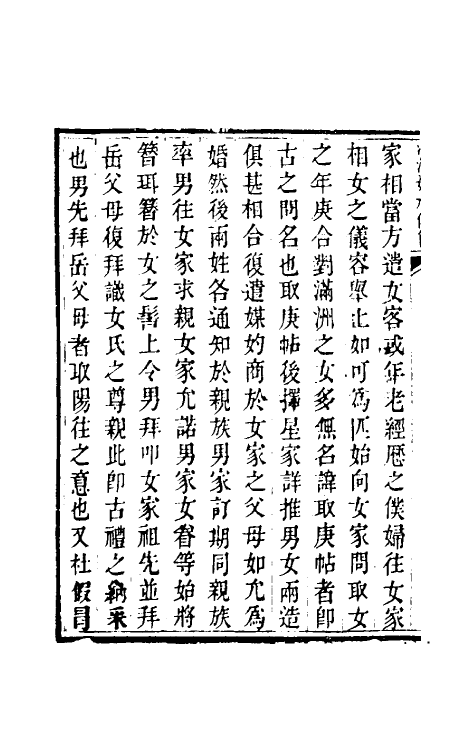 家相當方遣女客或年老經歷之僕婦往女家
相女之儀容舉止如可為匹始向女家問取女
之年庚合對滿洲之女多無名諱取庚帖者卽
古之問名也取庚帖後擇星家詳推男女兩造
俱甚相合復遣媒妁商於女家之父母如允為
婚然後兩姓各通知於親族男家訂期同親族
率男往女家求親女家允諾男家女眷等始將
簪珥簪於女之髻上令男拜叩女家祖先並拜
岳父母復拜識女氏之尊親此卽古禮之納采
也男先拜岳父母者取陽往之意也又杜假冒